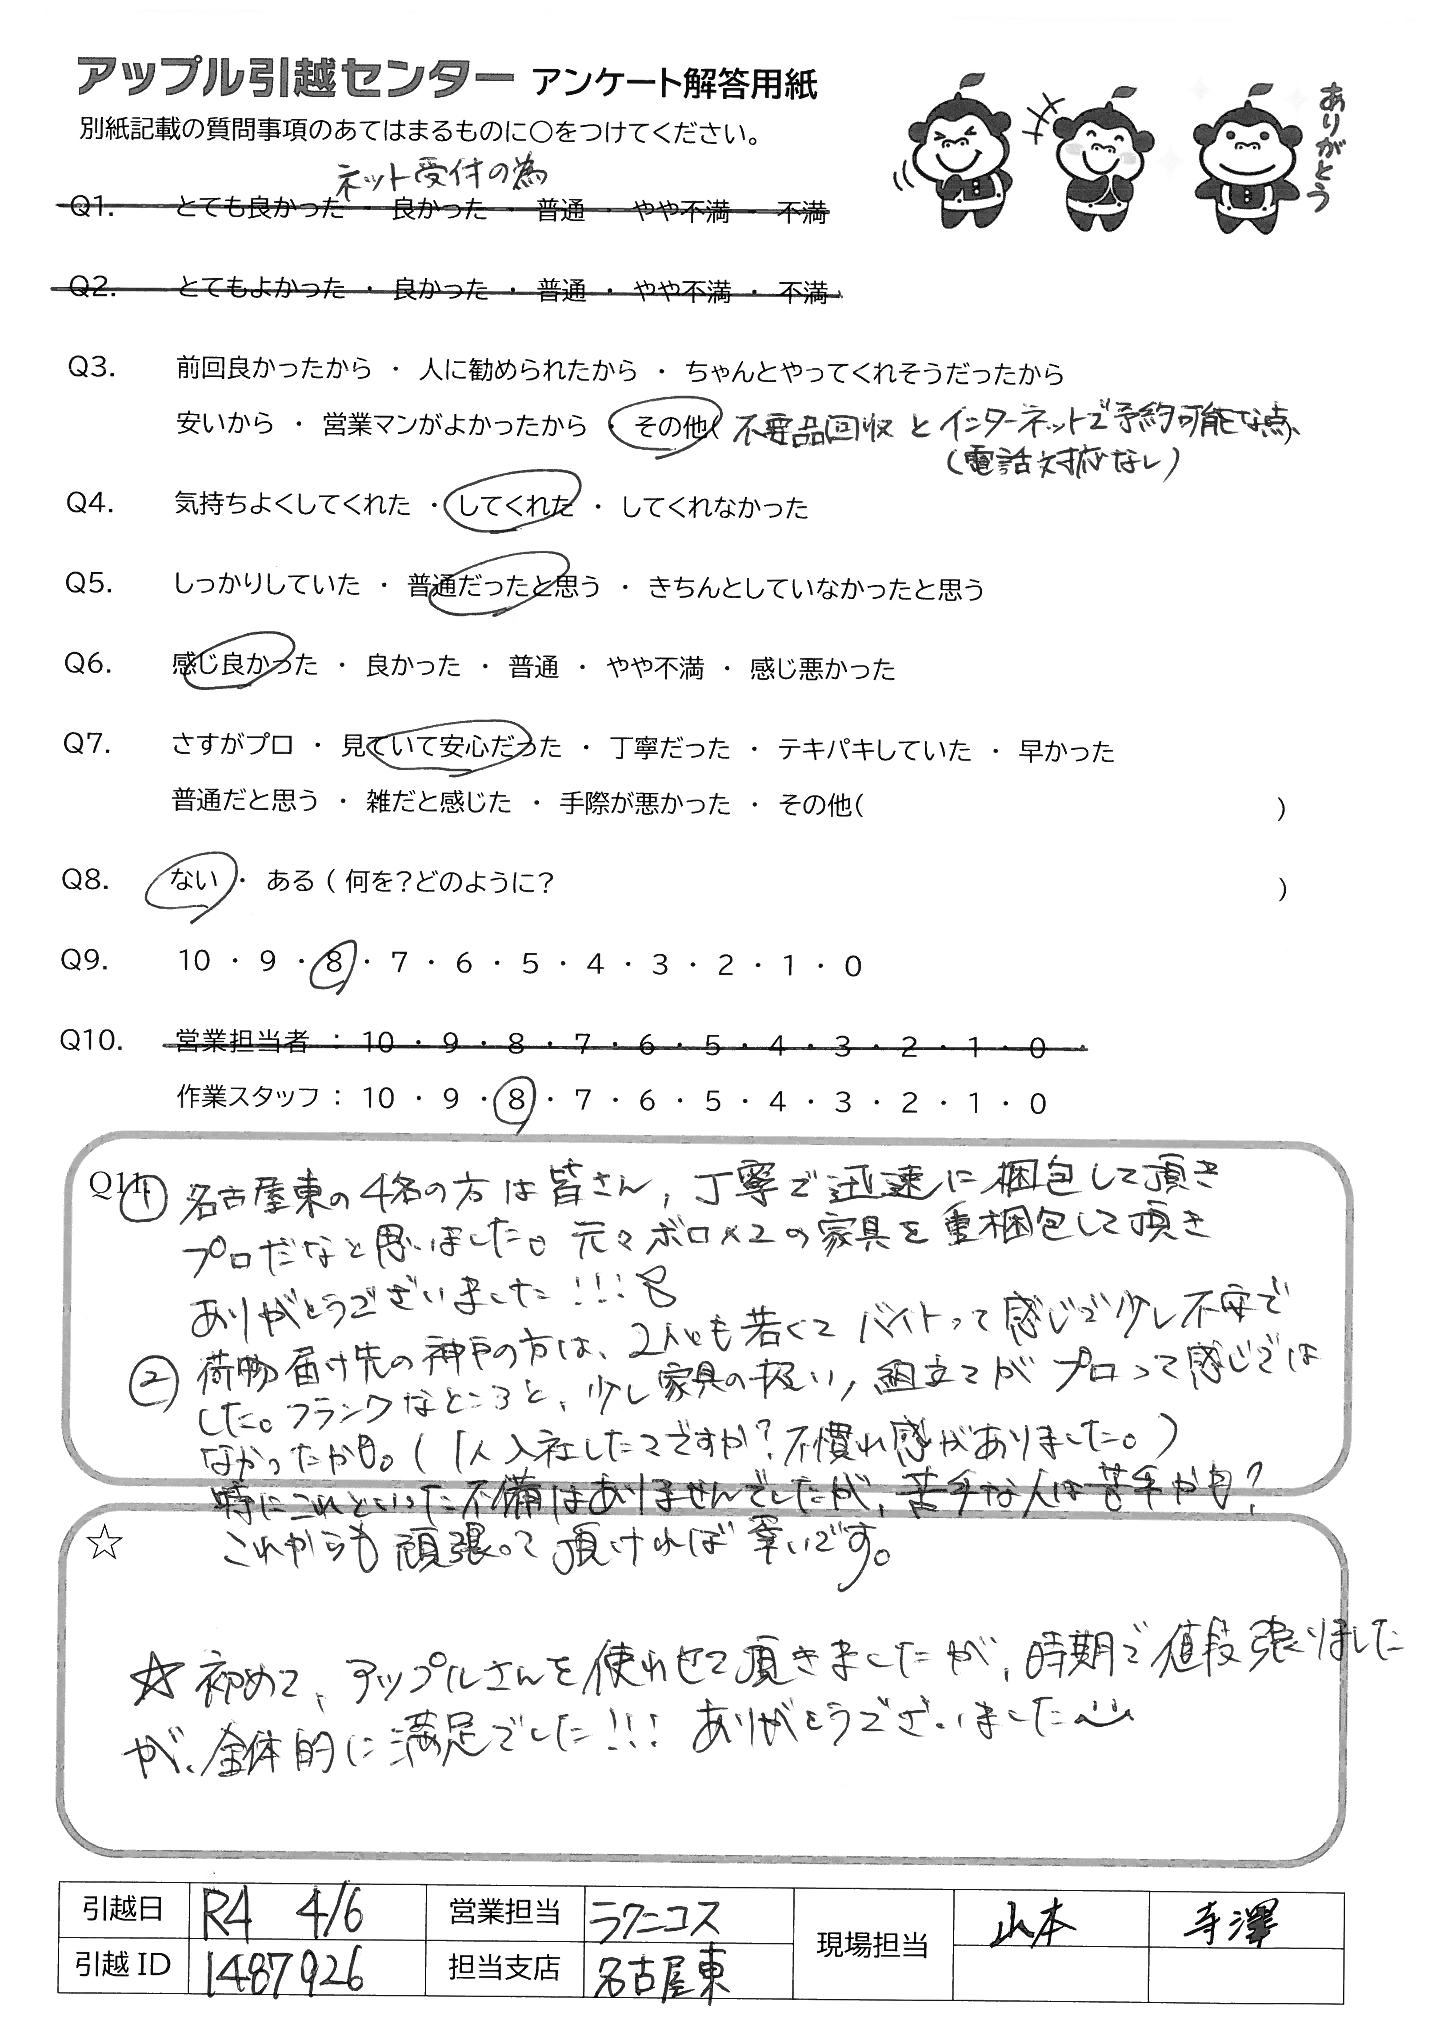 アップル引越センター アンケート解答用紙
別紙記載の質問事項のあてはまるものに○をつけてください。
ありがとう
ネット受付の為
Q1. とても良かった ・ 良かった ・ 普通 ・ やや不満 ・ 不満
Q2. とてもよかった ・ 良かった ・ 普通 ・ やや不満 ・ 不満
Q3. 前回良かったから ・ 人に勧められたから ・ ちゃんとやってくれそうだったから
安いから ・ 営業マンがよかったから ・ その他( 不要品回収とインターネットで予約可能な点、)
(電話対応なし)
Q4. 気持ちよくしてくれた ・ してくれた ・ してくれなかった
Q5. しっかりしていた ・ 普通だったと思う ・ きちんとしていなかったと思う
Q6. 感じ良かった ・ 良かった ・ 普通 ・ やや不満 ・ 感じ悪かった
Q7. さすがプロ ・ 見ていて安心だった ・ 丁寧だった ・ テキパキしていた ・ 早かった
普通だと思う ・ 雑だと感じた ・ 手際が悪かった ・ その他( )
Q8. ない ・ ある ( 何を?どのように? )
Q9. 10 ・ 9 ・ 8 ・ 7 ・ 6 ・ 5 ・ 4 ・ 3 ・ 2 ・ 1 ・ 0
Q10. 営業担当者 : 10 ・ 9 ・ 8 ・ 7 ・ 6 ・ 5 ・ 4 ・ 3 ・ 2 ・ 1 ・ 0
作業スタッフ : 10 ・ 9 ・ 8 ・ 7 ・ 6 ・ 5 ・ 4 ・ 3 ・ 2 ・ 1 ・ 0
Q11. ① 名古屋東の4名の方は皆さん, 丁寧で迅速に梱包して頂き
プロだなと思いました。元々ボロ×2の家具を重梱包して頂き
ありがとうございました!!!
② 荷物届け先の神戸の方は、2人とも若くてバイトって感じで少し不安で
した。フランクなところと、少し家具の扱い, 組立てがプロって感じでは
なかったかも。(1人入社したてですか?不慣れ感がありました。)
特にこれといった不備はありませんでしたが, 苦手な人は苦手かも?
これからも頑張って頂ければ幸いです。
☆
☆初めて、アップルさんを使わせて頂きましたが, 時期で値段張りました
が、全体的に満足でした!!! ありがとうございました
引越日 R4 4/6 営業担当 ラクニコス 現場担当 山本 寺澤
引越ID 1487926 担当支店 名古屋東